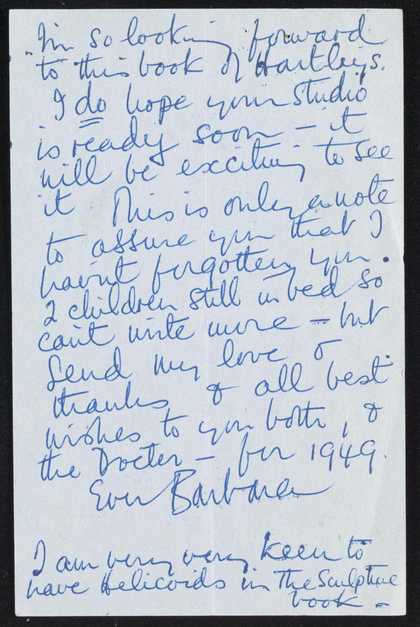 I'm so looking forward
to this book of Hartley's.
I do hope your studio
is ready soon – it
will be exciting to see
it This is only a note
to assure you that I
havn't forgotten you.
2 children still in bed so
can't write more – but
send my love &
thanks & all best
wishes to you both, &
the Docter – for 1949.
Ever Barbara
I am very very keen to
have Helicoids in the Sculpture
book –